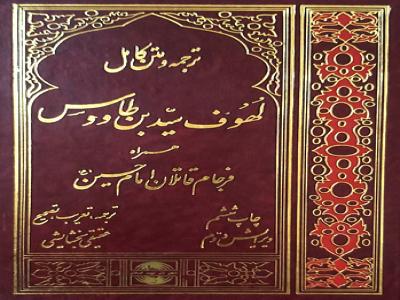 ترجمه و متن کامل
لهوف سید بن طاووس
همراه
فرجام قاتلان امام حسین
ترجمه، تعریب، تصحیح
عقیقی بخشایشی
چاپ ششم
ویرایش دوم